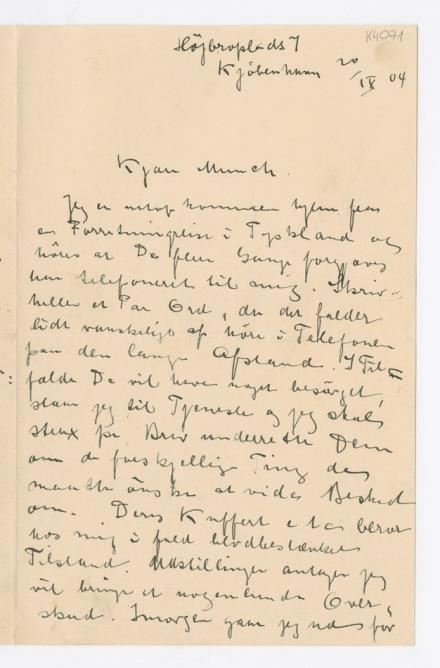 K4071
Højbroplads 7
Kjøbenhavn 20/IX 04
Kjære Munch.
Jeg er netop kommen hjem fra
en Forretningsreise i Tyskland og
hører at De flere Gange forgjæves
har telefoneret til mig. Skriv
heller et Par Ord, da det falder
lidt vanskeligt at høre i Telefonen
paa den lange Afstand. I Til=
fælde De vil have noget besørget,
staar jeg til Tjeneste og jeg skal
strax pr. Brev underrette Dem
om de forskjellige Ting de
maatte ønske at vide Besked
om. Deres Kuffert etc beror
hos mig i fuld blodbestænket
Tilstand. Udstillingen antager jeg
vil bringe et nogenlunde Over=
skud. Imorgen gaar jeg ud for